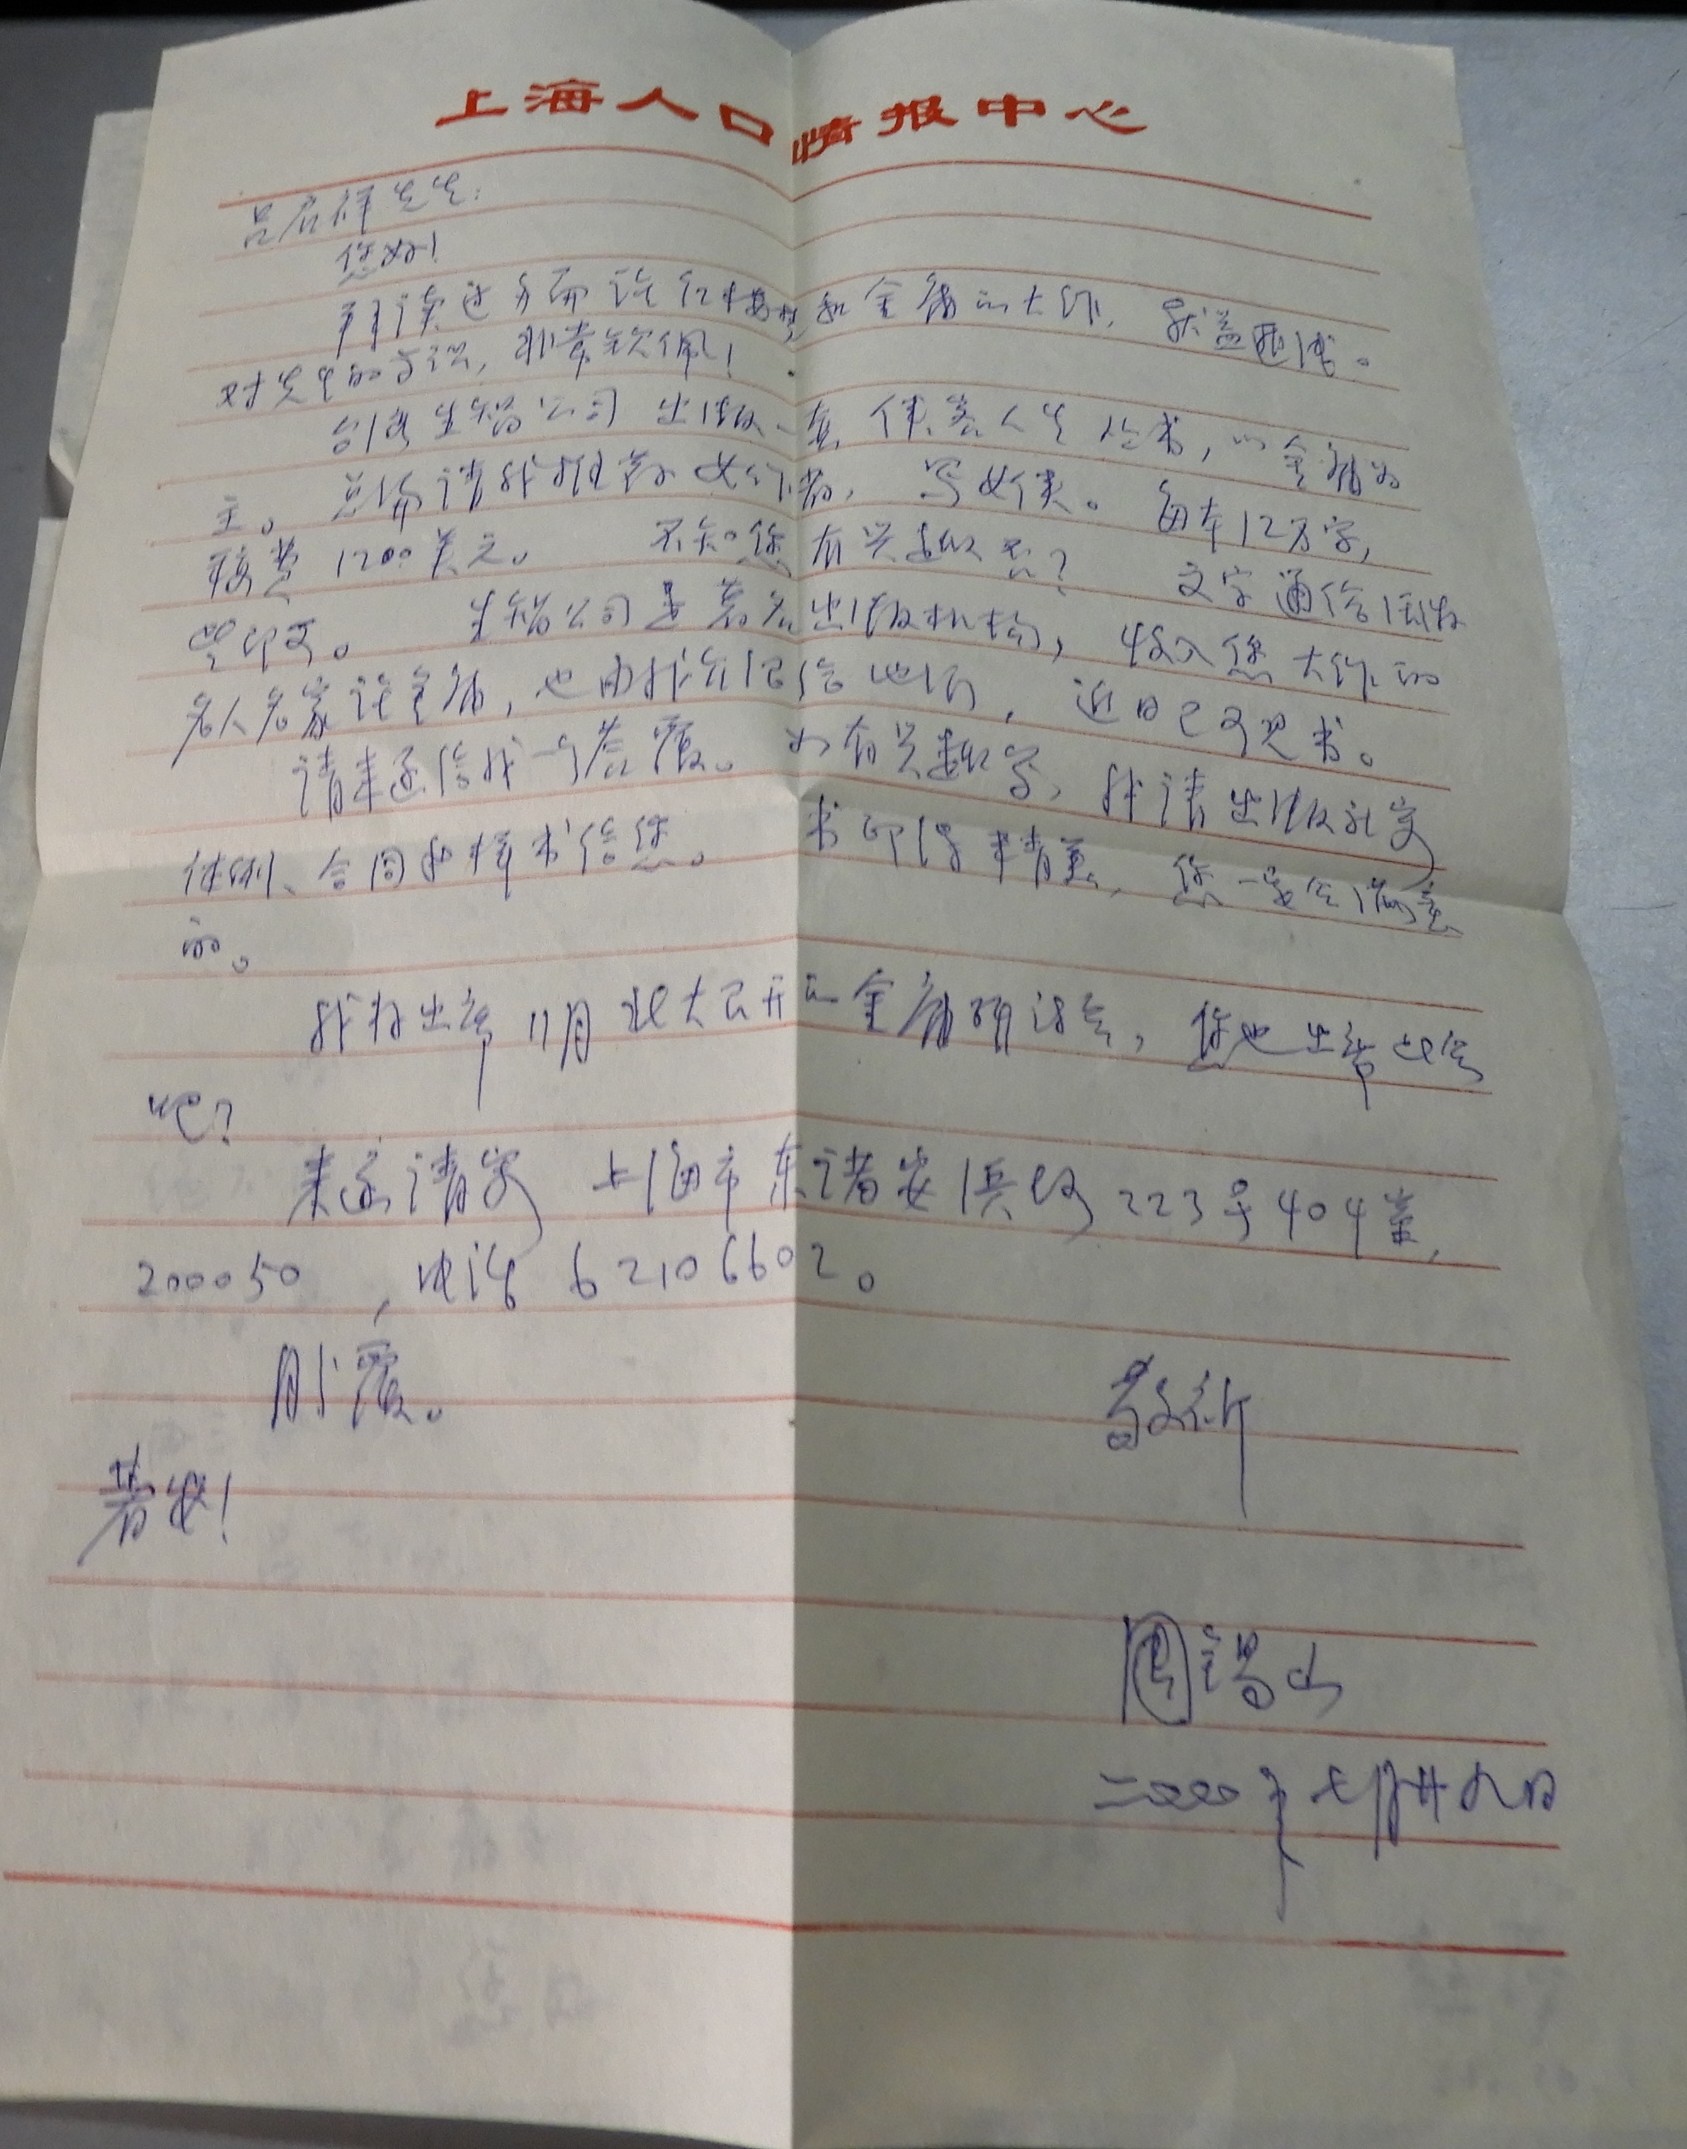 上海人口情报中心
吕启祥先生：
您好！
拜读过多篇论红楼梦和金庸的大作，获益匪浅。
对先生的才识，非常钦佩！
台湾生智公司出版一套侠客人生丛书，以金庸为
主。总编请我推荐女作者，写女侠。每本12万字，
稿费1200美元。不知您有兴趣否？文字通俗
即可。生智公司是著名出版机构，收入您大作的
名人名家论金庸，也由我介绍给他们，近日已可见书。
请来函给我一个答覆。如有兴趣写，我请出版社寄
体例、合同和样书给您。书印得精美，您一定会满意
的。
我将出席11月北大召开的金庸研讨会，您也出席此会
吧？
来函请寄 上海市东诸安浜路223号404室，
200050，电话62106602。
即覆。
敬祈
著安！
周锡山
二〇〇〇年七月廿九日